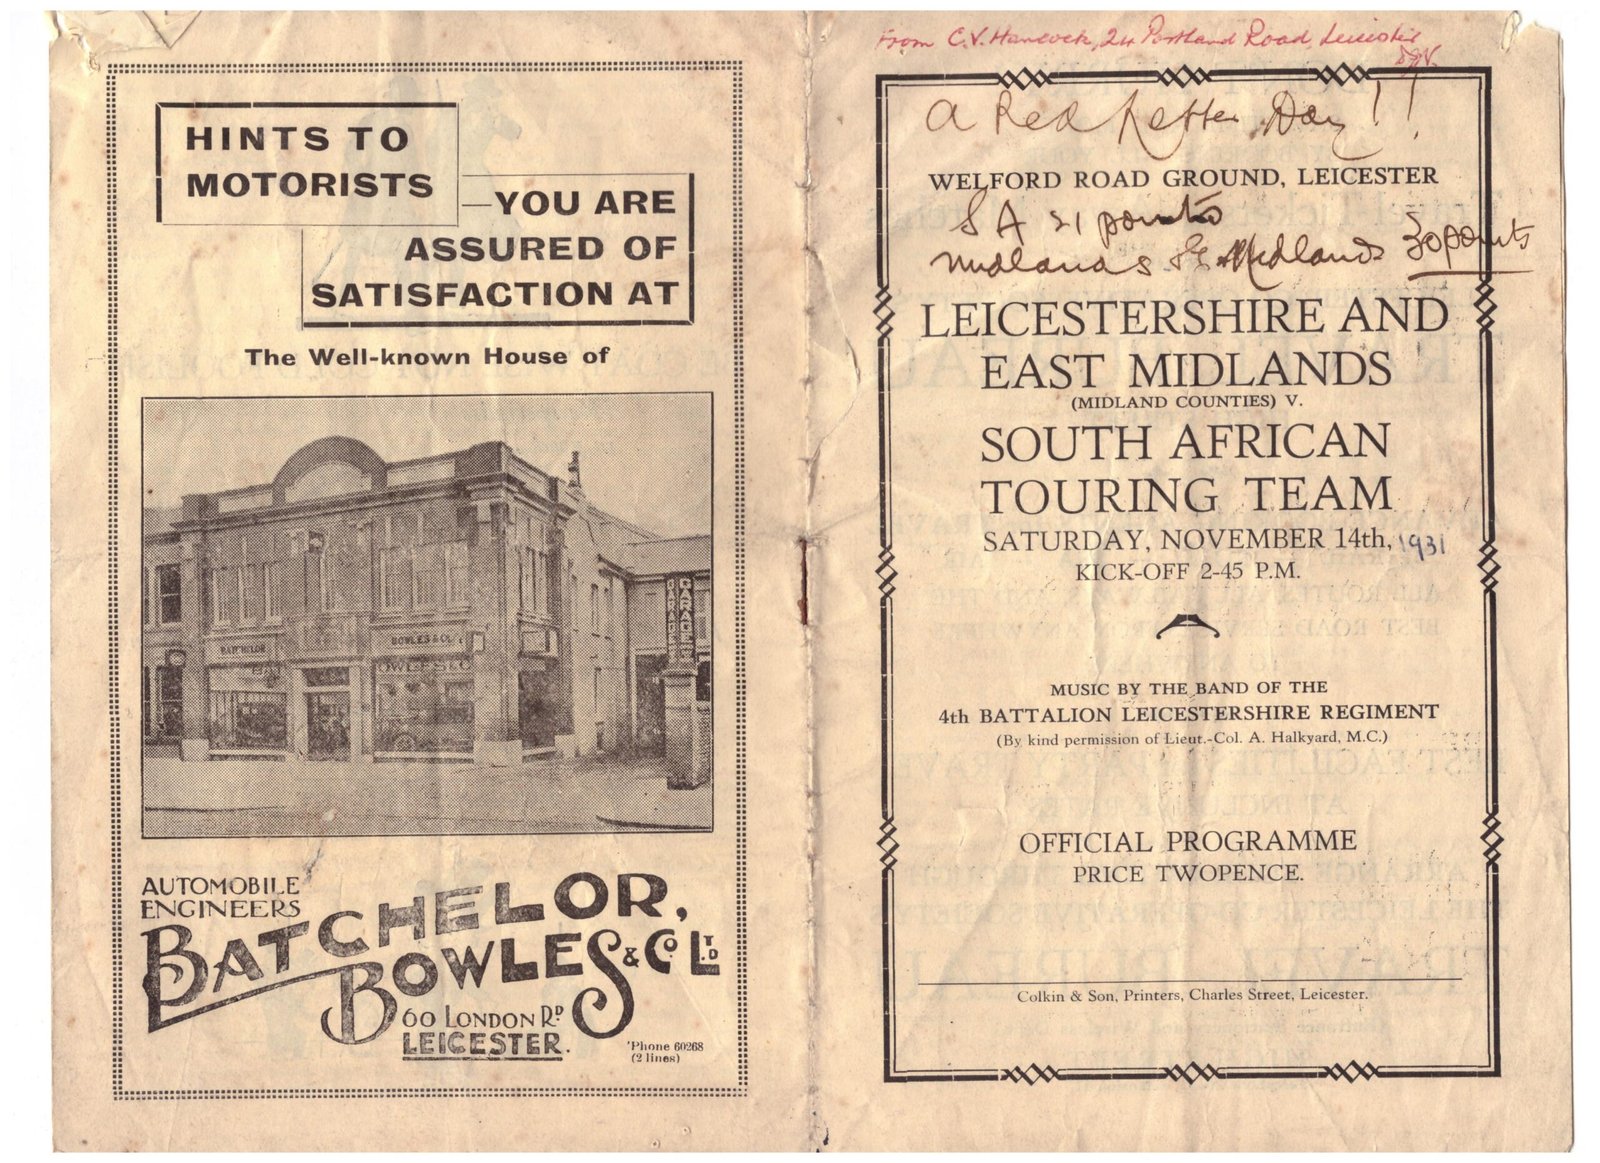 HINTS TO
MOTORISTS
—YOU ARE
ASSURED OF
SATISFACTION AT
The Well-known House of
BATCHELOR
BOWLES & Co
OWLES & C
GARAGE
GARAGE
AUTOMOBILE
ENGINEERS
BATCHELOR,
BOWLES & Co LTD
60 LONDON RD
LEICESTER.
'Phone 60268
(2 lines)
From C.V. Hancock, 24 Portland Road, Leicester
A Red Letter Day!!
WELFORD ROAD GROUND, LEICESTER
S A 21 points
Midlands Midlands 30 points
LEICESTERSHIRE AND
EAST MIDLANDS
(MIDLAND COUNTIES) V.
SOUTH AFRICAN
TOURING TEAM
SATURDAY, NOVEMBER 14th, 1931
KICK-OFF 2-45 P.M.
MUSIC BY THE BAND OF THE
4th BATTALION LEICESTERSHIRE REGIMENT
(By kind permission of Lieut.-Col. A. Halkyard, M.C.)
OFFICIAL PROGRAMME
PRICE TWOPENCE.
Colkin & Son, Printers, Charles Street, Leicester.